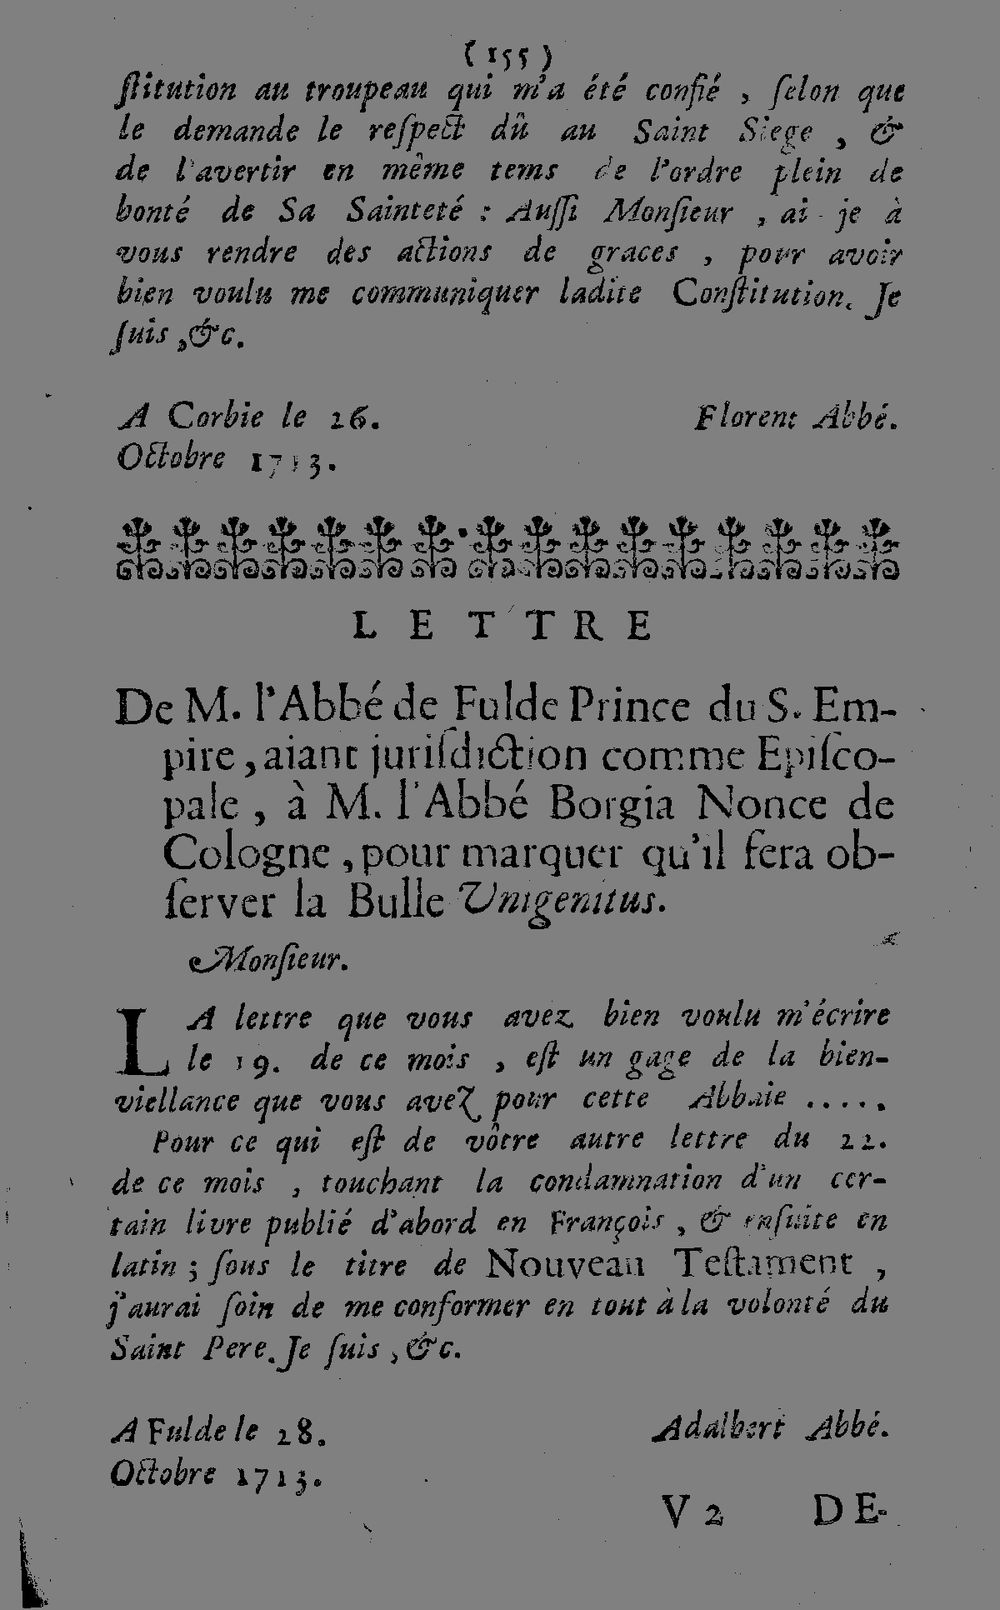 (155)
ſtitution au troupeau qui m'a été confié, ſelon que
le demande le reſpect dû au Saint Siege, &
de l'avertir en même tems de l'ordre plein de
bonté de Sa Sainteté : Auſſi Monſieur, ai-je à
vous rendre des actions de graces, pour avoir
bien voulu me communiquer ladite Conſtitution. Je
ſuis, &c.
A Corbie le 26. Florent Abbé.
Octobre 1713.
LETTRE
De M. l'Abbé de Fulde Prince du S. Em-
pire, aiant juriſdiction comme Epiſco-
pale, à M. l'Abbé Borgia Nonce de
Cologne, pour marquer qu'il ſera ob-
ſerver la Bulle Unigenitus.
Monſieur.
LA lettre que vous avez bien voulu m'écrire
le 19. de ce mois, eſt un gage de la bien-
viellance que vous avez pour cette Abbaie .....
Pour ce qui eſt de vôtre autre lettre du 22.
de ce mois, touchant la condamnation d'un cer-
tain livre publié d'abord en François, & enſuite en
latin ; ſous le titre de Nouveau Teſtament,
j'aurai ſoin de me conformer en tout à la volonté du
Saint Pere. Je ſuis, &c.
A Fulde le 28. Adalbert Abbé.
Octobre 1713.
V 2 DE-